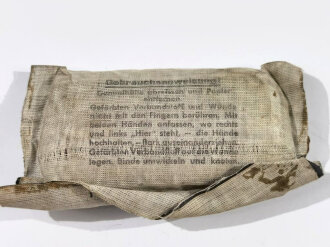 Gebrauchsanweisung!
Gummihülle abreißen und Papier
entfernen.
Gefärbten Verbandstoff und Wunde
nicht mit den Fingern berühren. Mit
beiden Händen anfassen, wo rechts
und links „Hier" steht, — die Hände
hochhalten, — flark auseinanderziehen.
Gefärbten Verbandstoff auf die Wunde
legen. Binde umwickeln und knoten.